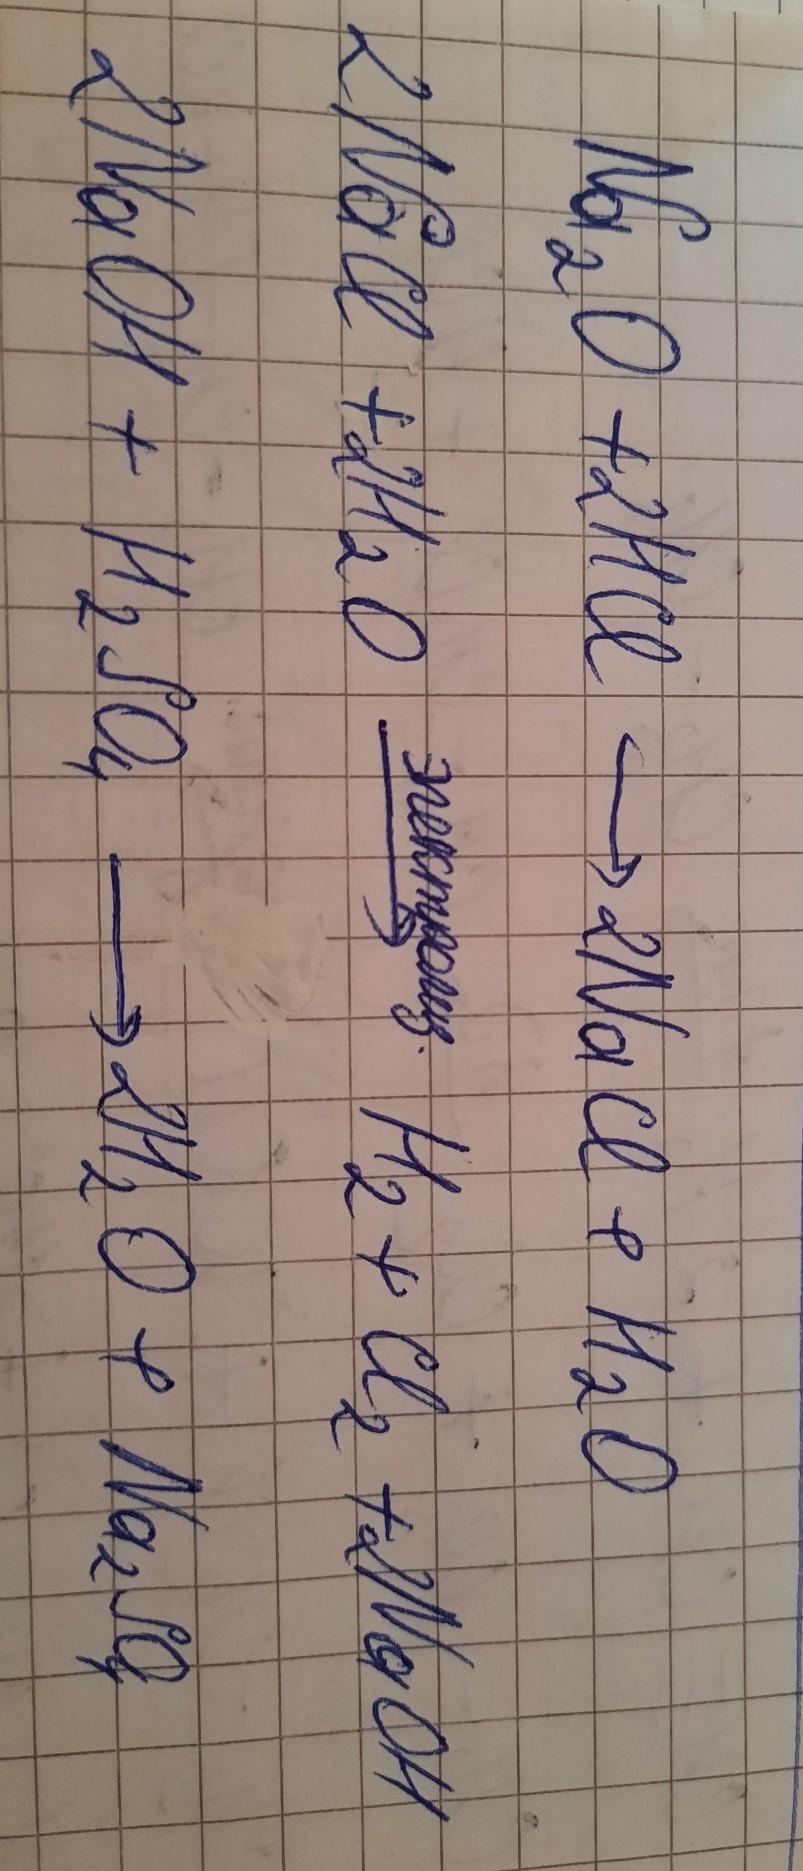 Na₂O + 2HCl → 2NaCl + H₂O
2NaCl + 2H₂O электролиз. → H₂ + Cl₂ + 2NaOH
2NaOH + H₂SO₄ → 2H₂O + Na₂SO₄